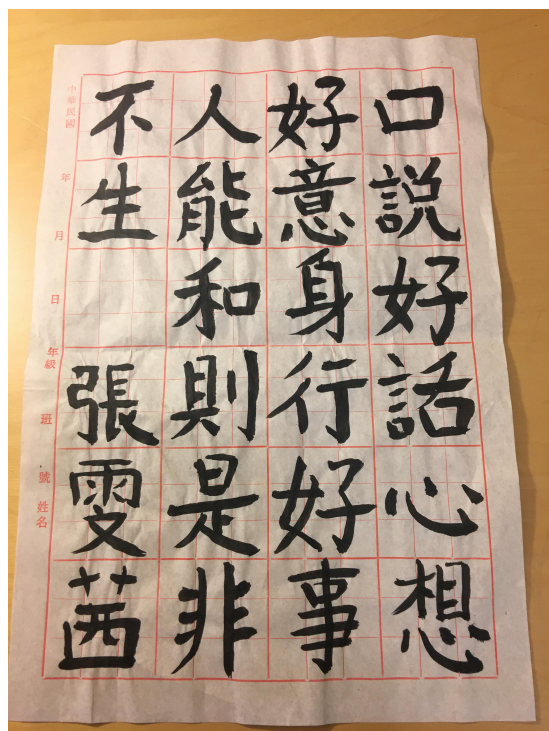 口説好話心想
好意身行好事
人能和則是非
不生 張雯茜
中華民國 年 月 日 年級 班 號 姓名